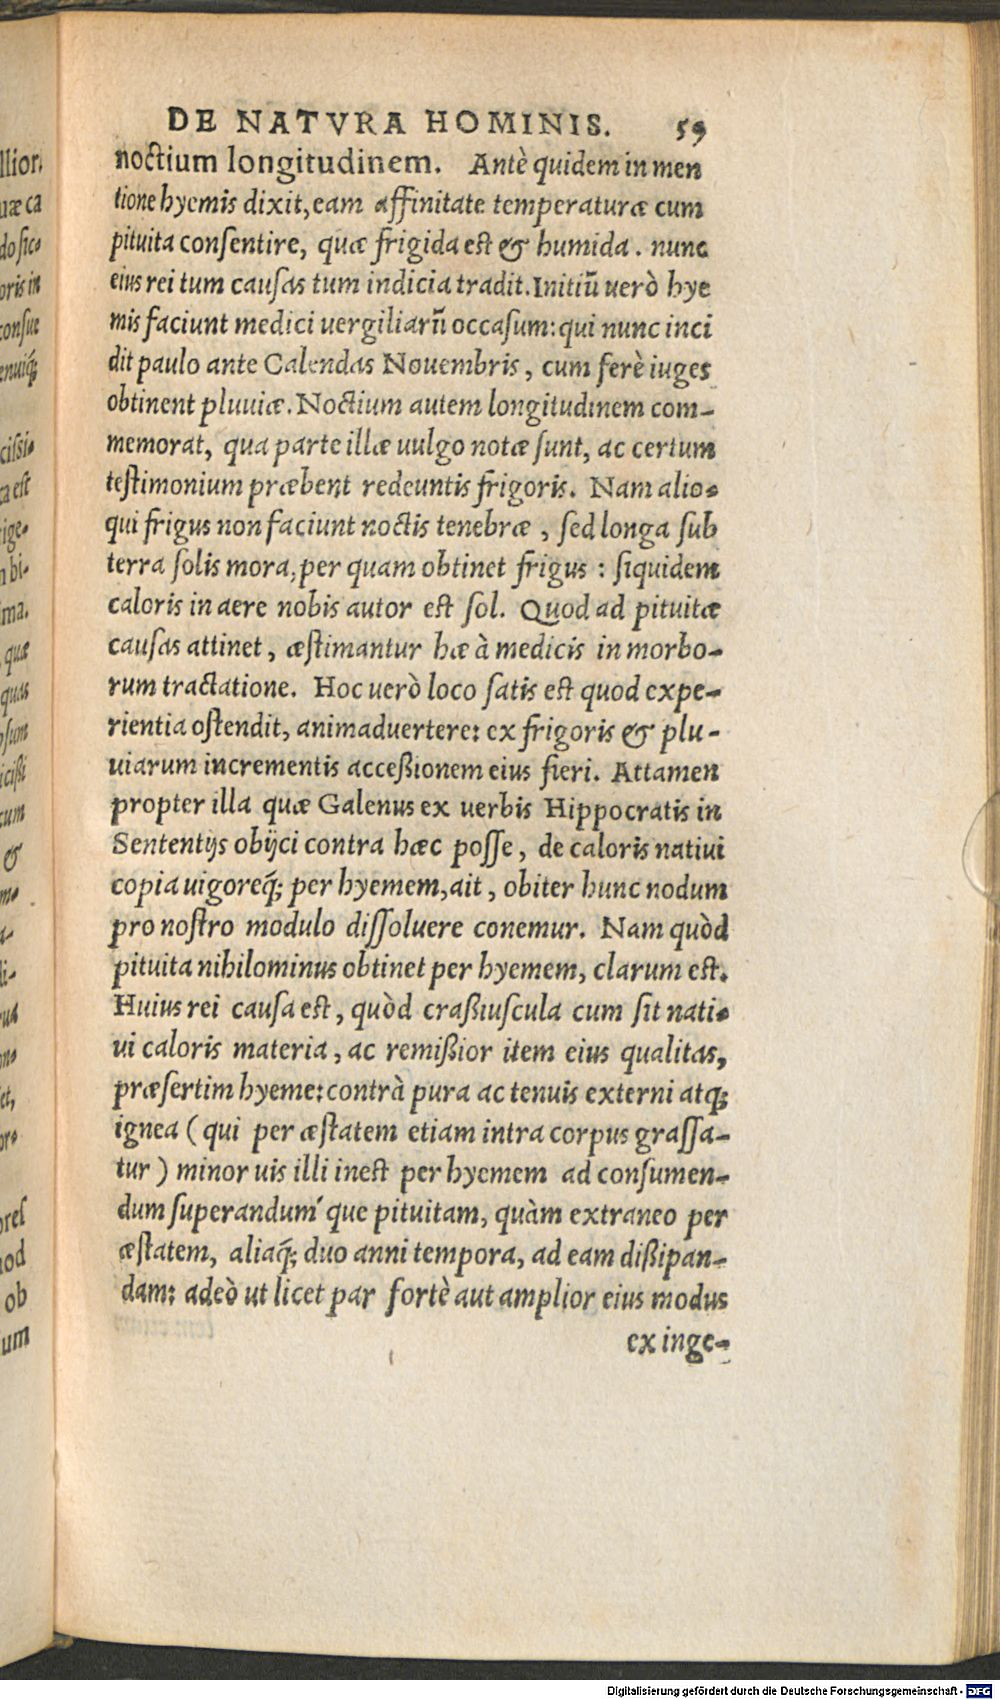 DE NATVRA HOMINIS. 59
noctium longitudinem. Antè quidem in men
tione hyemis dixit, eam affinitate temperaturæ cum
pituita consentire, quæ frigida est & humida. nunc
eius rei tum causas tum indicia tradit. Initiũ uerò hye
mis faciunt medici uergiliarũ occasum: qui nunc inci
dit paulo ante Calendas Nouembris, cum ferè iuges
obtinent pluuiæ. Noctium autem longitudinem com-
memorat, qua parte illæ uulgo notæ sunt, ac certum
testimonium præbent redeuntis frigoris. Nam alio-
qui frigus non faciunt noctis tenebræ, sed longa sub
terra solis mora, per quam obtinet frigus: siquidem
caloris in aere nobis autor est sol. Quod ad pituitæ
causas attinet, æstimantur hæ à medicis in morbo-
rum tractatione. Hoc uerò loco satis est quod expe-
rientia ostendit, animaduertere: ex frigoris & plu-
uiarum incrementis acceßionem eius fieri. Attamen
propter illa quæ Galenus ex uerbis Hippocratis in
Sententijs obijci contra hæc posse, de caloris natiui
copia uigoreq́; per hyemem, ait, obiter hunc nodum
pro nostro modulo dissoluere conemur. Nam quòd
pituita nihilominus obtinet per hyemem, clarum est.
Huius rei causa est, quòd craßiuscula cum sit nati-
ui caloris materia, ac remißior item eius qualitas,
præsertim hyeme: contrà pura ac tenuis externi atq;
ignea (qui per æstatem etiam intra corpus grassa-
tur) minor uis illi inest per hyemem ad consumen-
dum superanduḿ que pituitam, quàm extraneo per
æstatem, aliaq́; duo anni tempora, ad eam dißipan-
dam: adeò ut licet par fortè aut amplior eius modus
ex inge-
Digitalisierung gefördert durch die Deutsche Forschungsgemeinschaft - DFG